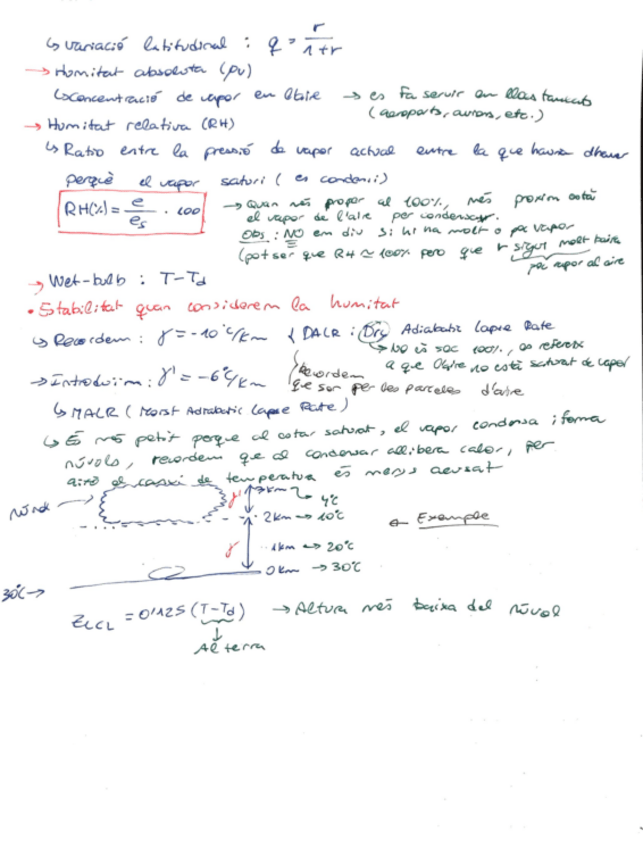 ↳ Variació latitudinal : q = r / 1+r
→ Humitat absoluta (ρv)
↳ concentració de vapor en l'aire → es fa servir en llocs tancats
(aeroports, avions, etc.)
→ Humitat relativa (RH)
↳ Ratio entre la pressió de vapor actual entre la que hauria d'haver
perquè el vapor saturi (es condensi)
RH(%) = e / es · 100
→ Quan més proper al 100%, més proxim està
el vapor de l'aire per condensar.
Obs: NO em diu si hi ha molt o poc vapor
(pot ser que RH ≃ 100% però que r sigui molt baixa
poc vapor al aire
→ Wet-bulb : T-Td
• Estabilitat quan considerem la humitat
↳ Recordem : γ = -10°C/km { DALR : Dry Adiabatic Lapse Rate
↳ No és sec 100%, es refereix
a que l'aire no està saturat de vapor
→ Introduïm : γ' = -6°C/km
Recordem
que son per les parcel·les d'aire
↳ MALR (Moist Adiabatic Lapse Rate)
↳ És més petit perque al estar saturat, el vapor condensa i forma
núvols, recordem que al condensar allibera calor, per
això el canvi de temperatura és menys acusat
núvol → γ' 3km → 4°C
2km → 10°C ← Exemple
γ 1km → 20°C
0km → 30°C
30°C →
ZLCL = 0'125 (T-Td) → Altura més baixa del núvol
↓
Al terra